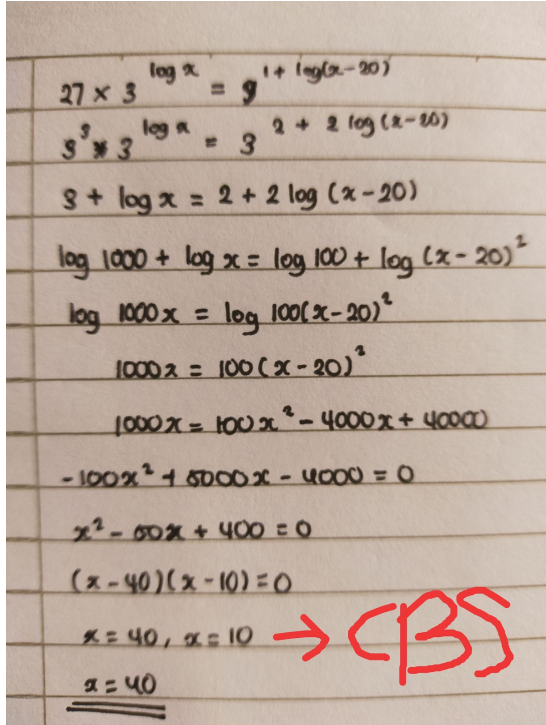 27 × 3^(log x) = 9^(1 + log(x-20))
3³ × 3^(log x) = 3^(2 + 2 log (x-20))
3 + log x = 2 + 2 log (x-20)
log 1000 + log x = log 100 + log (x-20)²
log 1000x = log 100(x-20)²
1000x = 100(x-20)²
1000x = 100x² - 4000x + 40000
-100x² + 5000x - 4000 = 0
x² - 50x + 400 = 0
(x-40)(x-10)=0
x = 40, x = 10 → CBS
x = 40